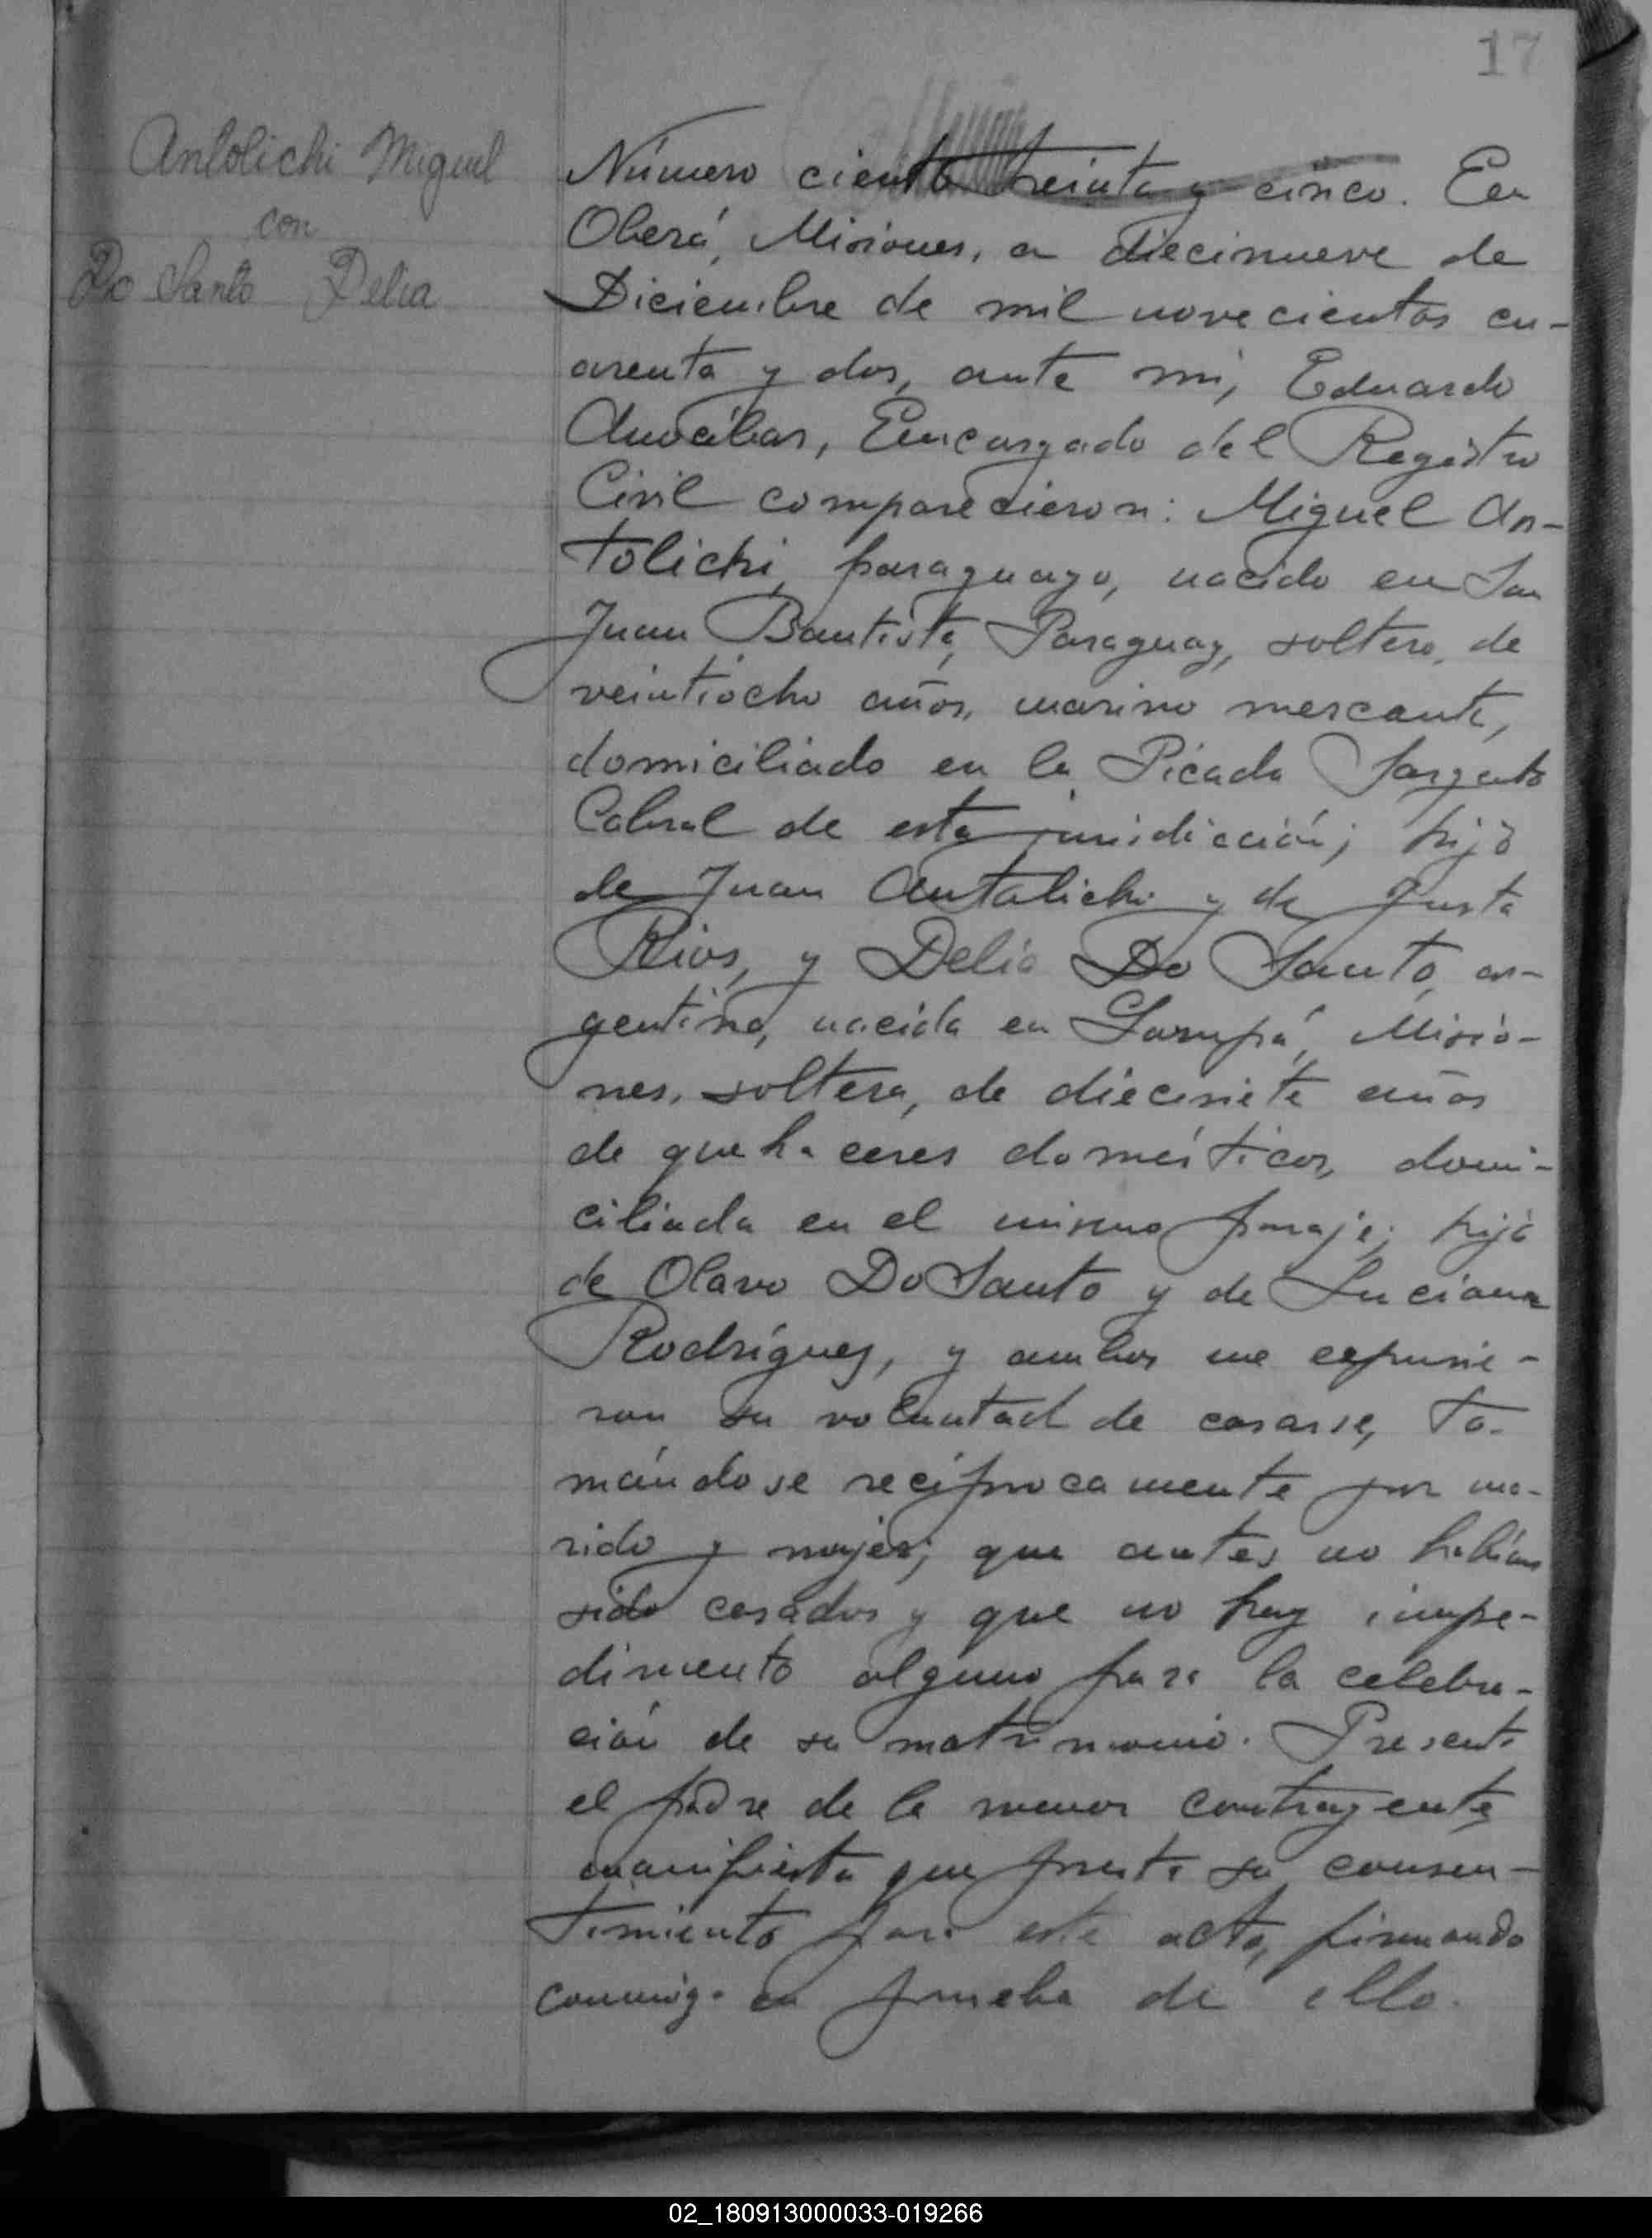 17
Antolichi Miguel
con
Do Santo Delia
Número ciento treinta y cinco. En
Oberá, Misiones, a diecinueve de
Diciembre de mil novecientos cu-
arenta y dos, ante mi, Eduardo
Encargado del Registro
Civil comparecieron: Miguel An-
tolichi, paraguayo, nacido en San
Juan Bautista, Paraguay, soltero, de
veintiocho años, marino mercante,
domiciliado en la Picada Sargento
Cabral de esta jurisdicción; hijo
de Juan Antalichi y de Justa
Rios, y Delia Do Santo, ar-
gentina, nacida en Garupá, Misio-
nes, soltera, de diecisiete años
de quehaceres domésticos, domi-
ciliada en el mismo paraje; hija
de Olavo Do Santo y de Luciana
Rodríguez, y ambos me expusie-
ron su voluntad de casarse, to-
mándose recíprocamente por ma-
rido y mujer; que antes no habían
sido casados y que no hay impe-
dimento alguno para la celebra-
ción de su matrimonio. Presente
el padre de la menor contrayente
manifiesta que presta su consen-
timiento para este acto, firmando
conmigo en prueba de ello.
02_180913000033-019266